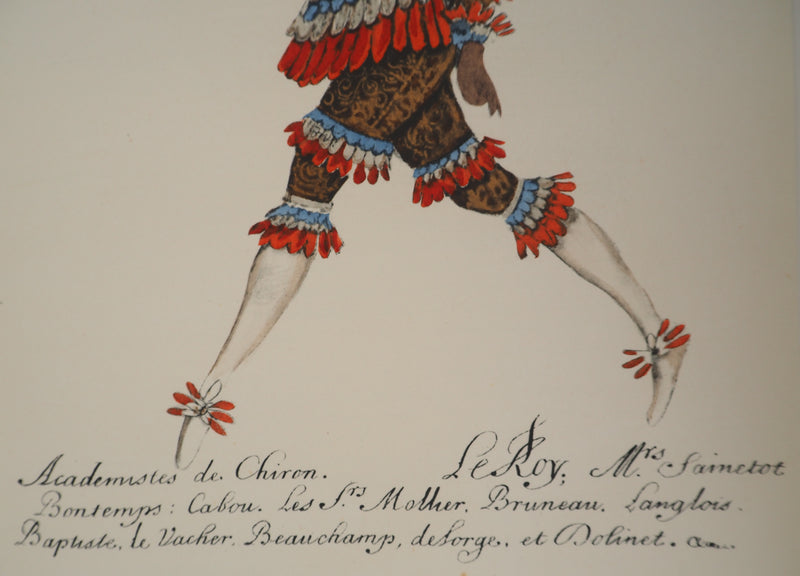 Academistes de Chiron. Le Roy; M.rs Sainctot
Bontemps: Cabou. Les S.rs Mollier, Bruneau. Langlois.
Baptiste, le Vacher. Beauchamp, delorge. et Dolinet.